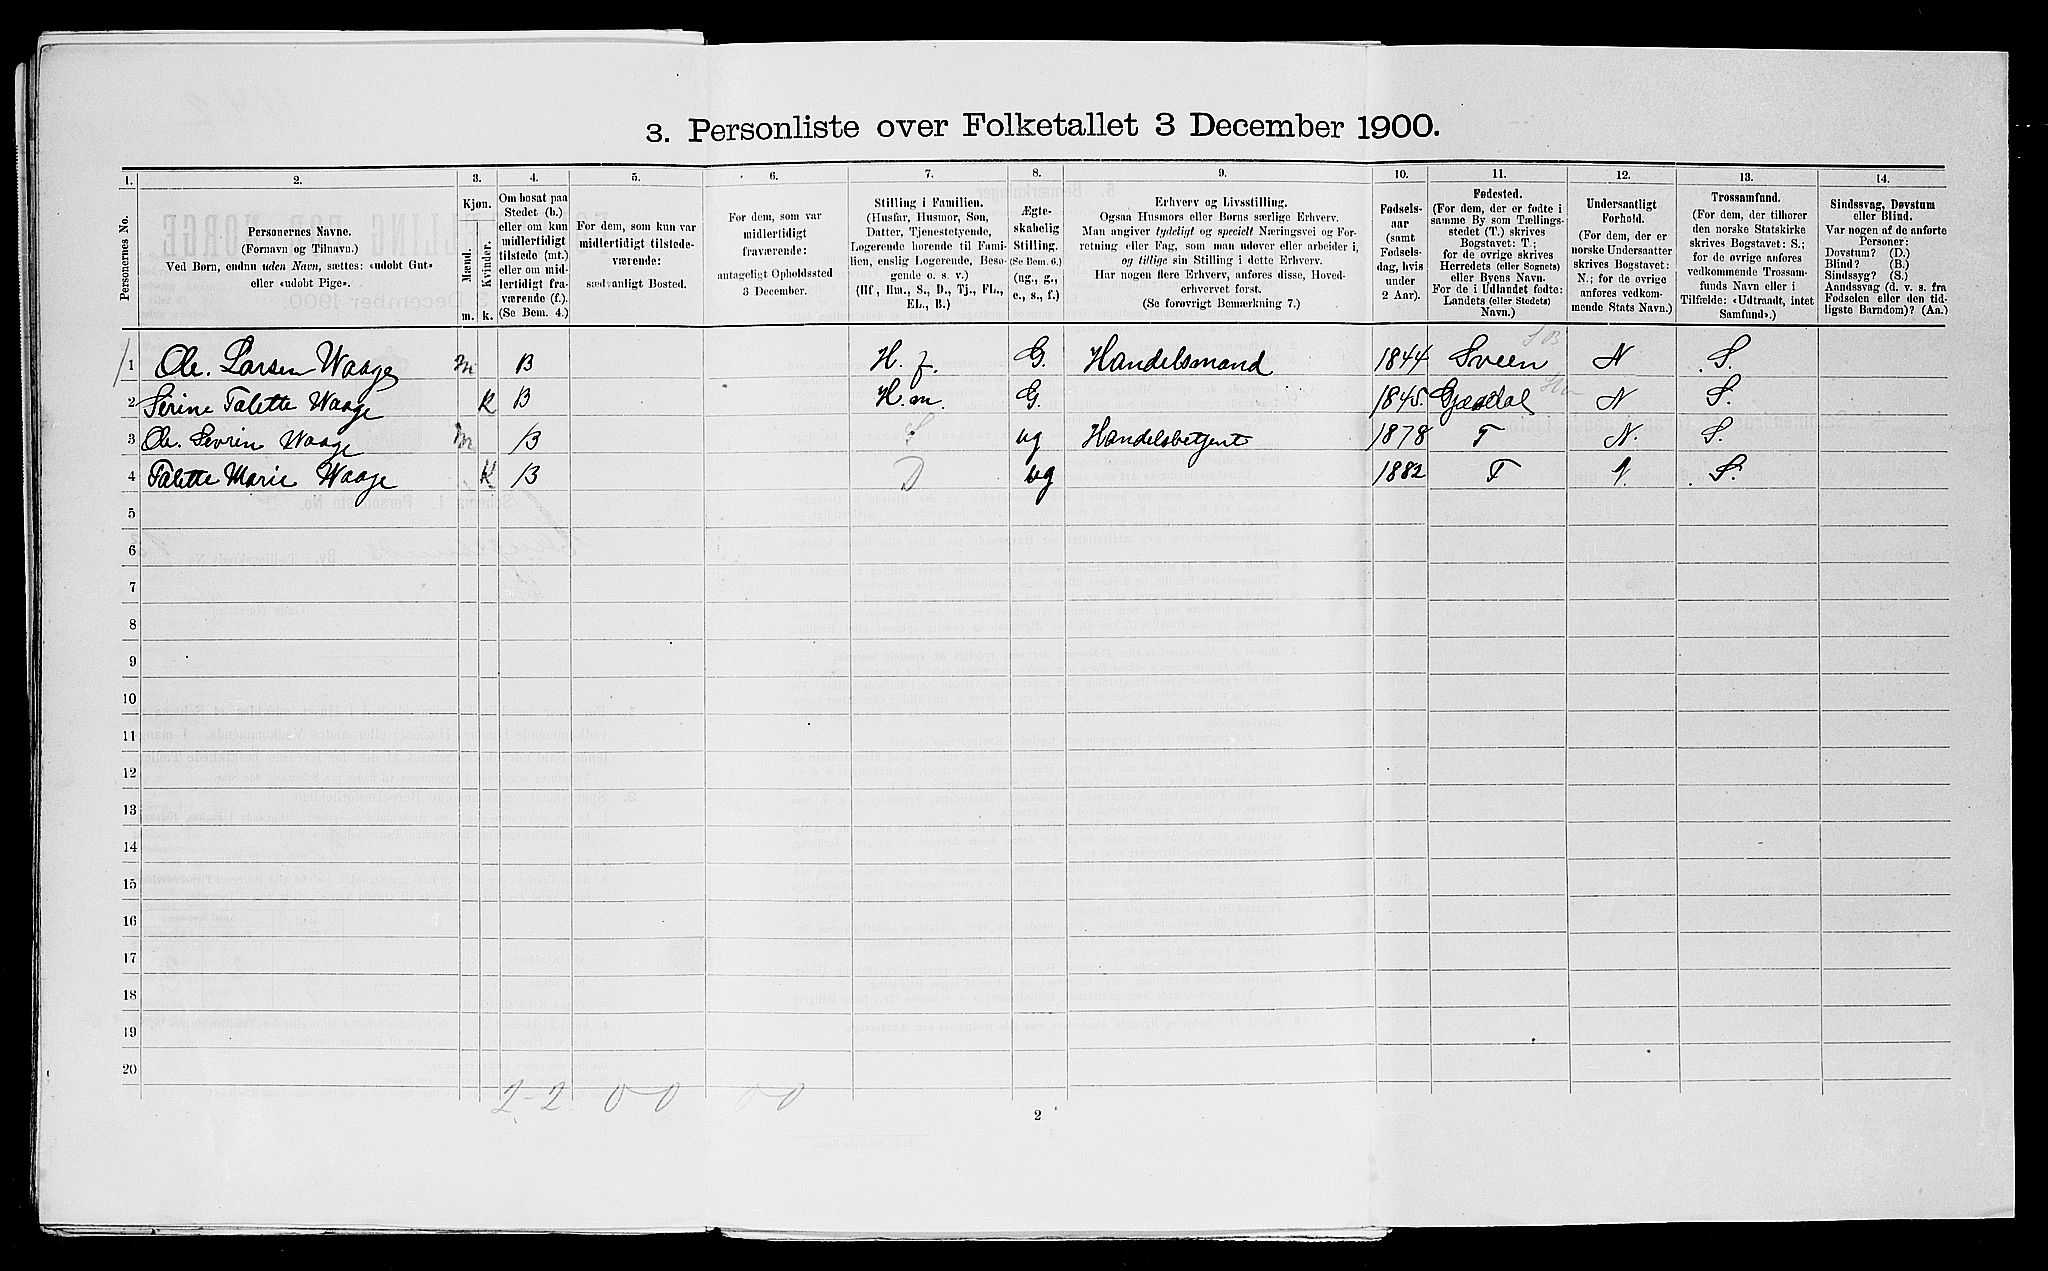 3. Personliste over Folketallet 3 December 1900.
1. 2. 3. 4. 5. 6. 7. 8. 9. 10. 11. 12. 13. 14.
Personernes No.
Personernes Navne.
(Fornavn og Tilnavn.)
Ved Børn, endnu uden Navn, sættes: «udøbt Gut»
eller «udøbt Pige».
Kjøn.
Mænd.
Kvinder.
m. k.
Om bosat paa
Stedet (b.)
eller om kun
midlertidigt
tilstede (mt.)
eller om mid-
lertidigt fra-
værende (f.).
(Se Bem. 4.)
For dem, som kun var
midlertidigt tilstede-
værende:
sædvanligt Bosted.
For dem, som var
midlertidigt
fraværende:
antageligt Opholdssted
3 December.
Stilling i Familien.
(Husfar, Husmor, Søn,
Datter, Tjenestetyende,
Logerende hørende til Fami-
lien, enslig Logerende, Besø-
gende o. s. v.)
(Hf., Hm., S., D., Tj., FL.,
EL., B.)
Ægte-
skabelig
Stilling.
(Se Bem. 6.)
(ug., g.,
e., s., f.)
Erhverv og Livsstilling.
Ogsaa Husmors eller Børns særlige Erhverv.
Man angiver tydeligt og specielt Næringsvei og For-
retning eller Fag, som man udøver eller arbeider i,
og tillige sin Stilling i dette Erhverv.
Har nogen flere Erhverv, anføres disse, Hoved-
erhvervet først.
(Se forøvrigt Bemærkning 7.)
Fødsels-
aar
(samt
Fødsels-
dag, hvis
under
2 Aar).
Fødested.
(For dem, der er fødte i
samme By som Tællings-
stedet (T.) skrives
Bogstavet: T.;
for de øvrige skrives
Herredets (eller Sognets)
eller Byens Navn.
For de i Udlandet fødte:
Landets (eller Stedets)
Navn.)
Undersaatligt
Forhold.
(For dem, der er
norske Undersaatter
skrives Bogstavet:
N.; for de øvrige
anføres vedkom-
mende Stats Navn.)
Trossamfund.
(For dem, der tilhører
den norske Statskirke
skrives Bogstav: S.;
for de øvrige anføres
vedkommende Trossam-
funds Navn eller i
Tilfælde: «Udtraadt, intet
Samfund».)
Sindssvag, Døvstum
eller Blind.
Var nogen af de anførte
Personer:
Døvstum? (D.)
Blind? (B.)
Sindssyg? (S.)
Aandssvag (d. v. s. fra
Fødselen eller den tid-
ligste Barndom)? (Aa.)
1 Ole. Larsen Waage m B H. f. G. Handelsmand 1844 Sveen N S.
2 Serine Talette Waage K B H.m. G. 1845. Gjæsdal N S.
3 Ole. Sevrin Waage m B S ug Handelsbetjent 1878 T N. S.
4 Talette Marie Waage K B D ug 1882 T N. S.
5
6
7
8
9
10
11
12
13
14
15
16
17
18
19
20
2-2 0 0 0 0
2